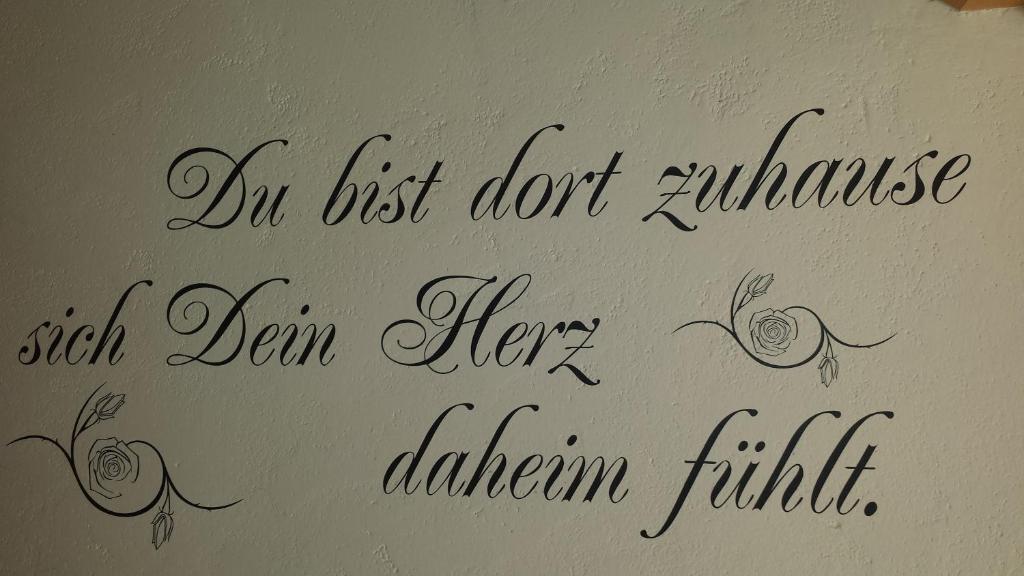 Du bist dort zuhause
sich Dein Herz
daheim fühlt.